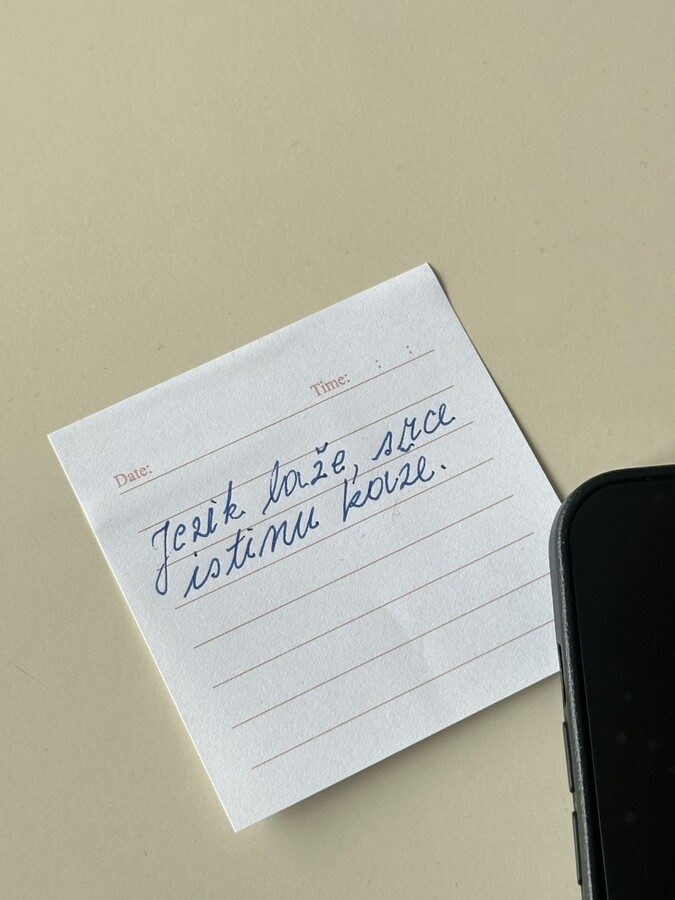 Time: : :
Date:
Jezik laže, srce
istinu kaže.